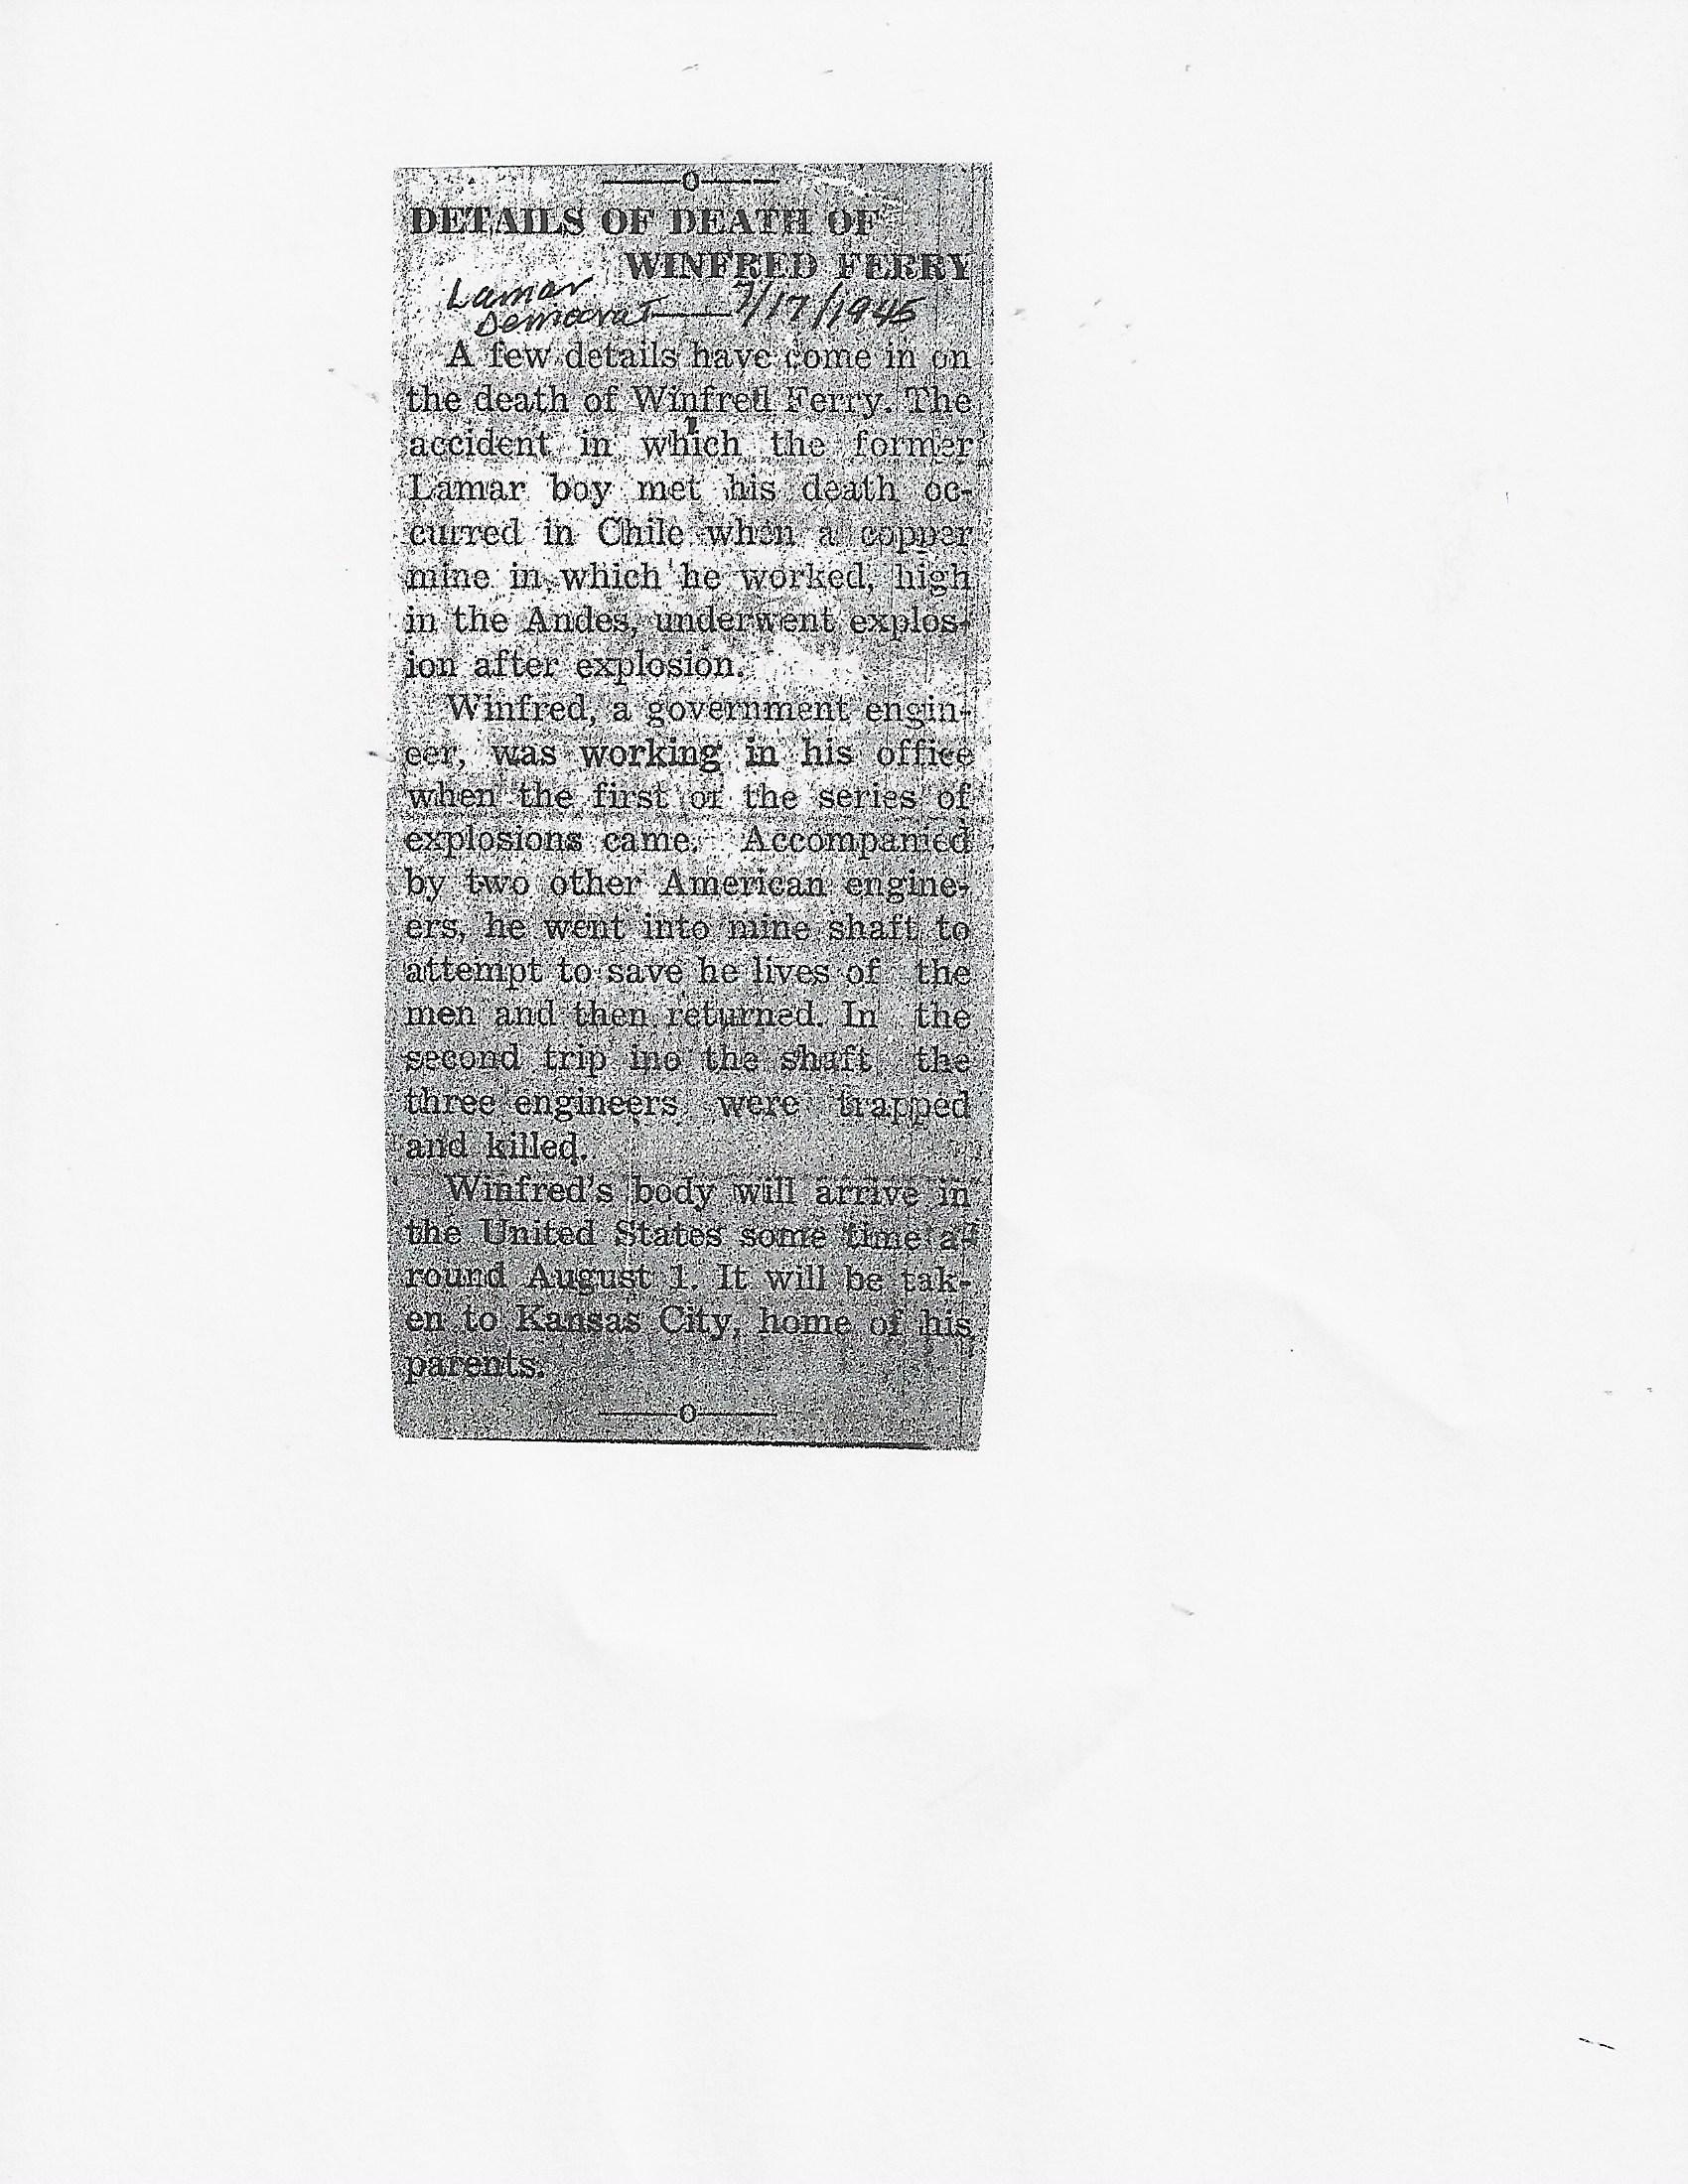 ——o——
DETAILS OF DEATH OF
WINFRED FERRY
Lamar
Democrat——7/17/1945
A few details have come in on
the death of Winfred Ferry. The
accident in which the former
Lamar boy met his death oc-
curred in Chile when a copper
mine in which he worked, high
in the Andes, underwent explos-
ion after explosion.
Winfred, a government engin-
eer, was working in his office
when the first of the series of
explosions came. Accompanied
by two other American engine-
ers, he went into mine shaft to
attempt to save he lives of the
men and then returned. In the
second trip ino the shaft the
three engineers were trapped
and killed.
Winfred's body will arrive in
the United States some time a-
round August 1. It will be tak-
en to Kansas City, home of his
parents.
——o——